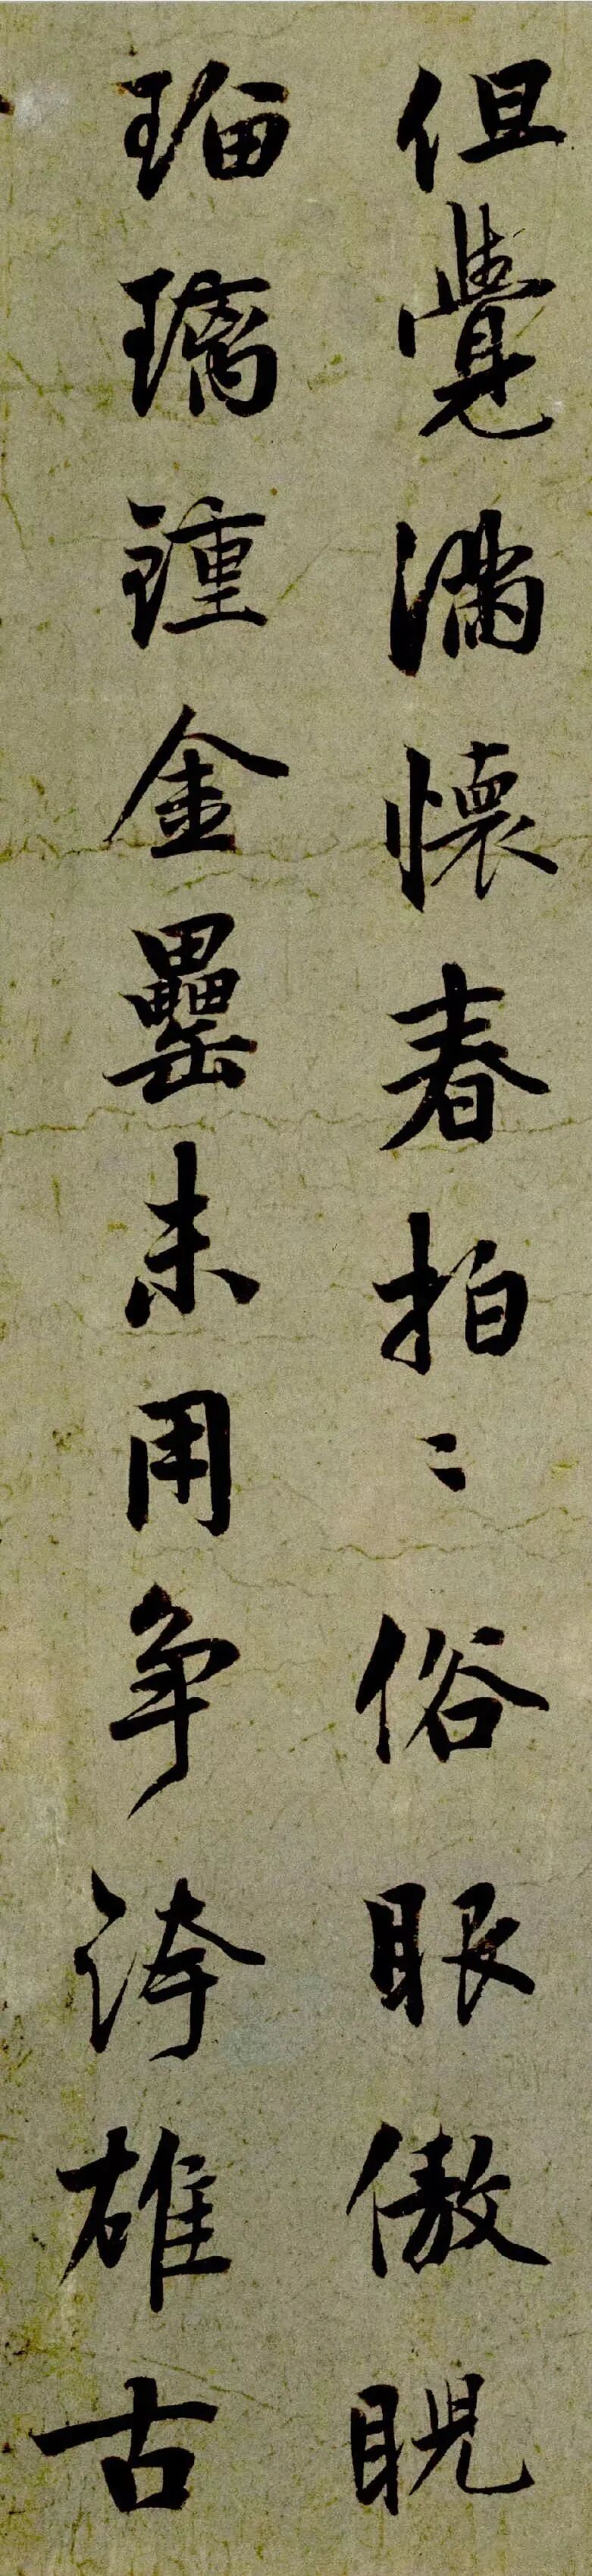 但覺滿懷春拍〻俗眼傲睨
瑠璃鍾金罍未用爭誇雄古